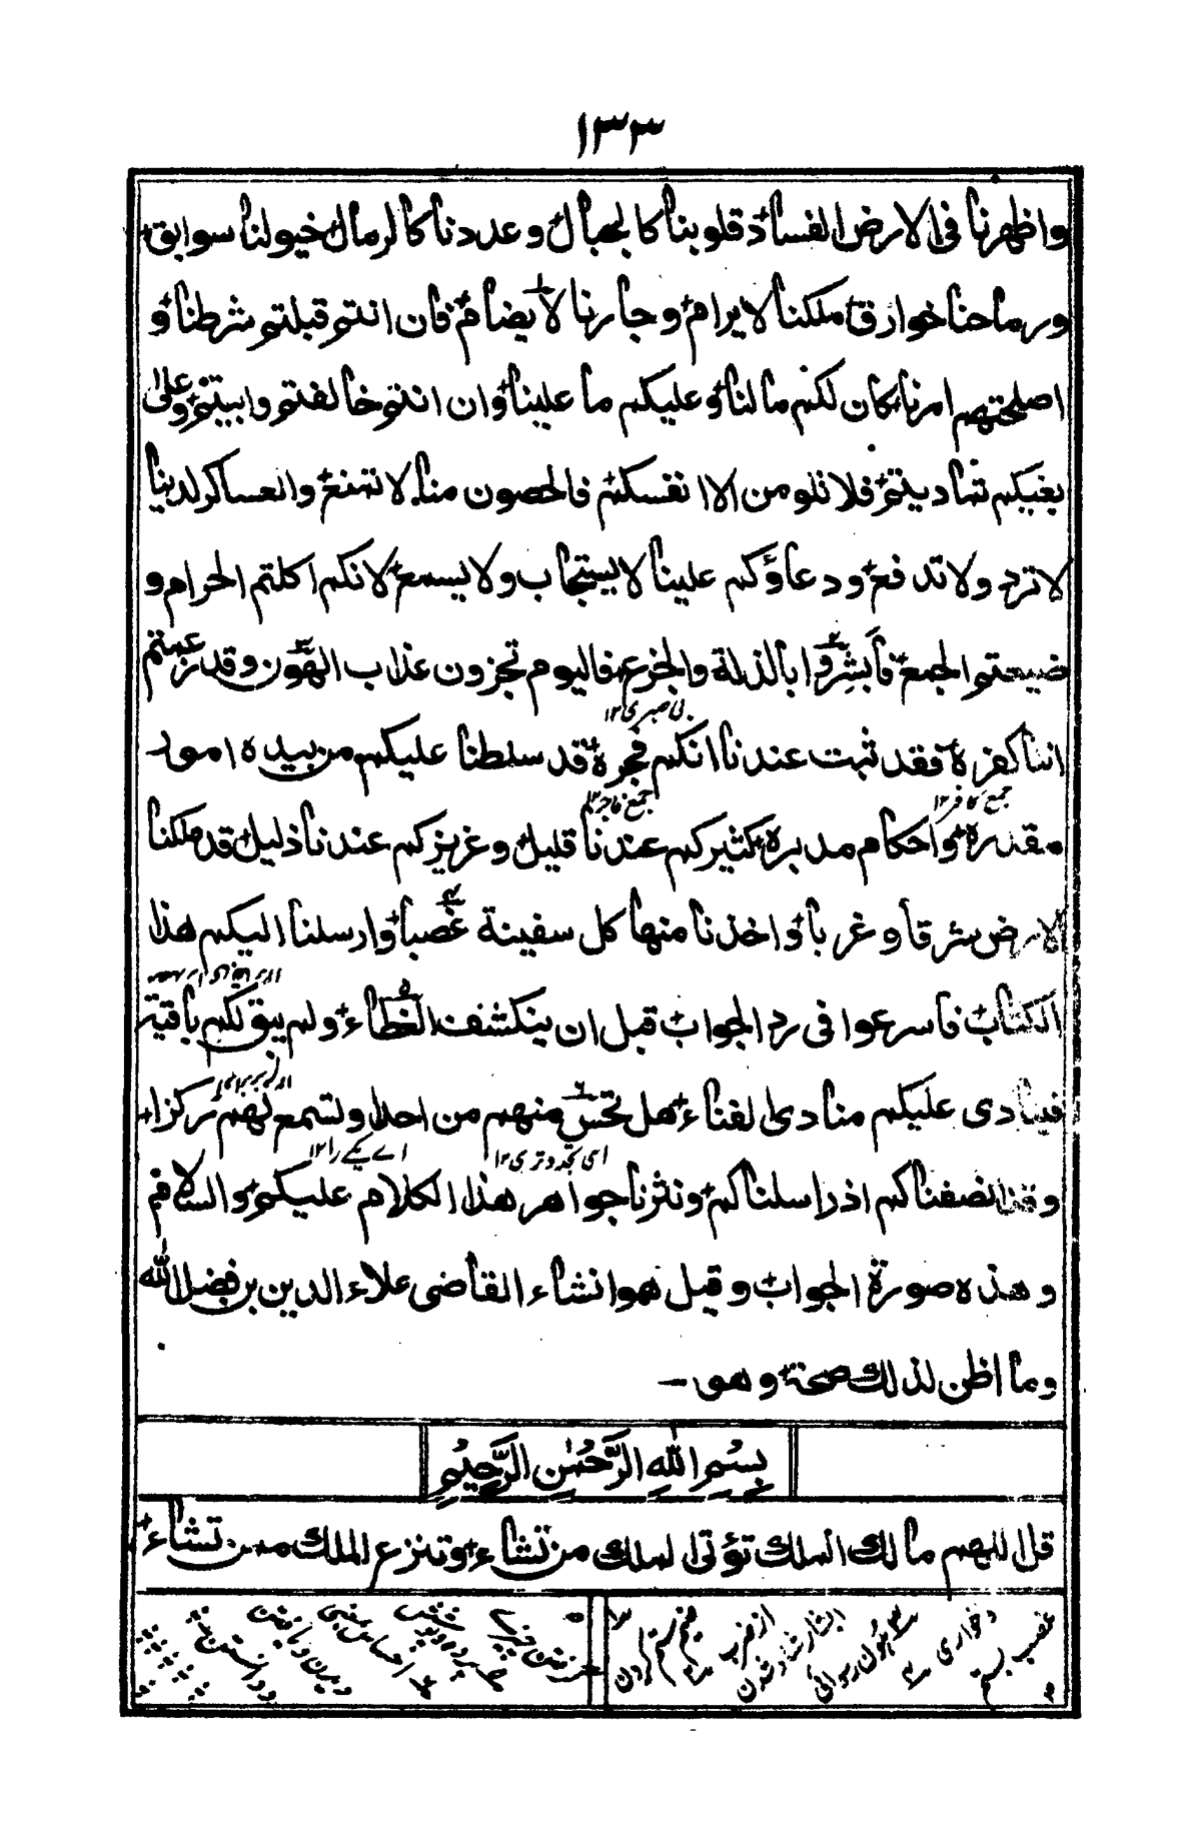 ١٣٣
واظهرنا فى الارض الفساد قلوبنا كالجبال وعددنا كالرمال خيولنا سوابق
ورماحنا خوارق ملكنا لا يرام وجارنا لا يضام فان انتم قبلتم شرطنا و
اصلحتهم امرنا كان لكم ما لنا وعليكم ما علينا وان انتم خالفتم وابيتم وعلى
بغيكم تماديتم فلا تلومن الا انفسكم فالحصون منا لا تمنع والعساكر لدينا
لا ترد ولا تدفع ودعاؤكم علينا لا يستجاب ولا يسمع لانكم اكلتم الحرام و
ضيعتم الجمع فأبشروا بالذلة والجزع فاليوم تجزون عذاب الهون وقد زعمتم
بى صبرى ١٢
اننا كفرة فقد ثبت عندنا انكم فجرة قد سلطنا عليكم من بيده امور
جمع كافر ١٢ جمع فاجر ١٢
مقدرة واحكام مدبرة كثيركم عندنا قليل وعزيزكم عندنا ذليل قد ملكنا
الارض شرقا وغربا واخذنا منها كل سفينة غصبا وارسلنا اليكم هذا
الكتاب فاسرعوا فى رد الجواب قبل ان ينكشف الغطاء ولم يبق لكم باقية
فينادى عليكم منادى الفناء هل تحس منهم من احد او تسمع لهم ركزا
وقد انصفناكم اذ راسلناكم ونثرنا جواهر هذا الكلام عليكم والسلام
وهذه صورة الجواب وقيل هو انشاء القاضى علاء الدين بن فضل الله
وما اظن لذلك صحة وهو —
بِسْمِ اللهِ الرَّحْمٰنِ الرَّحِيْمِ
قل اللهم مالك الملك تؤتى الملك من تشاء وتنزع الملك من تشاء